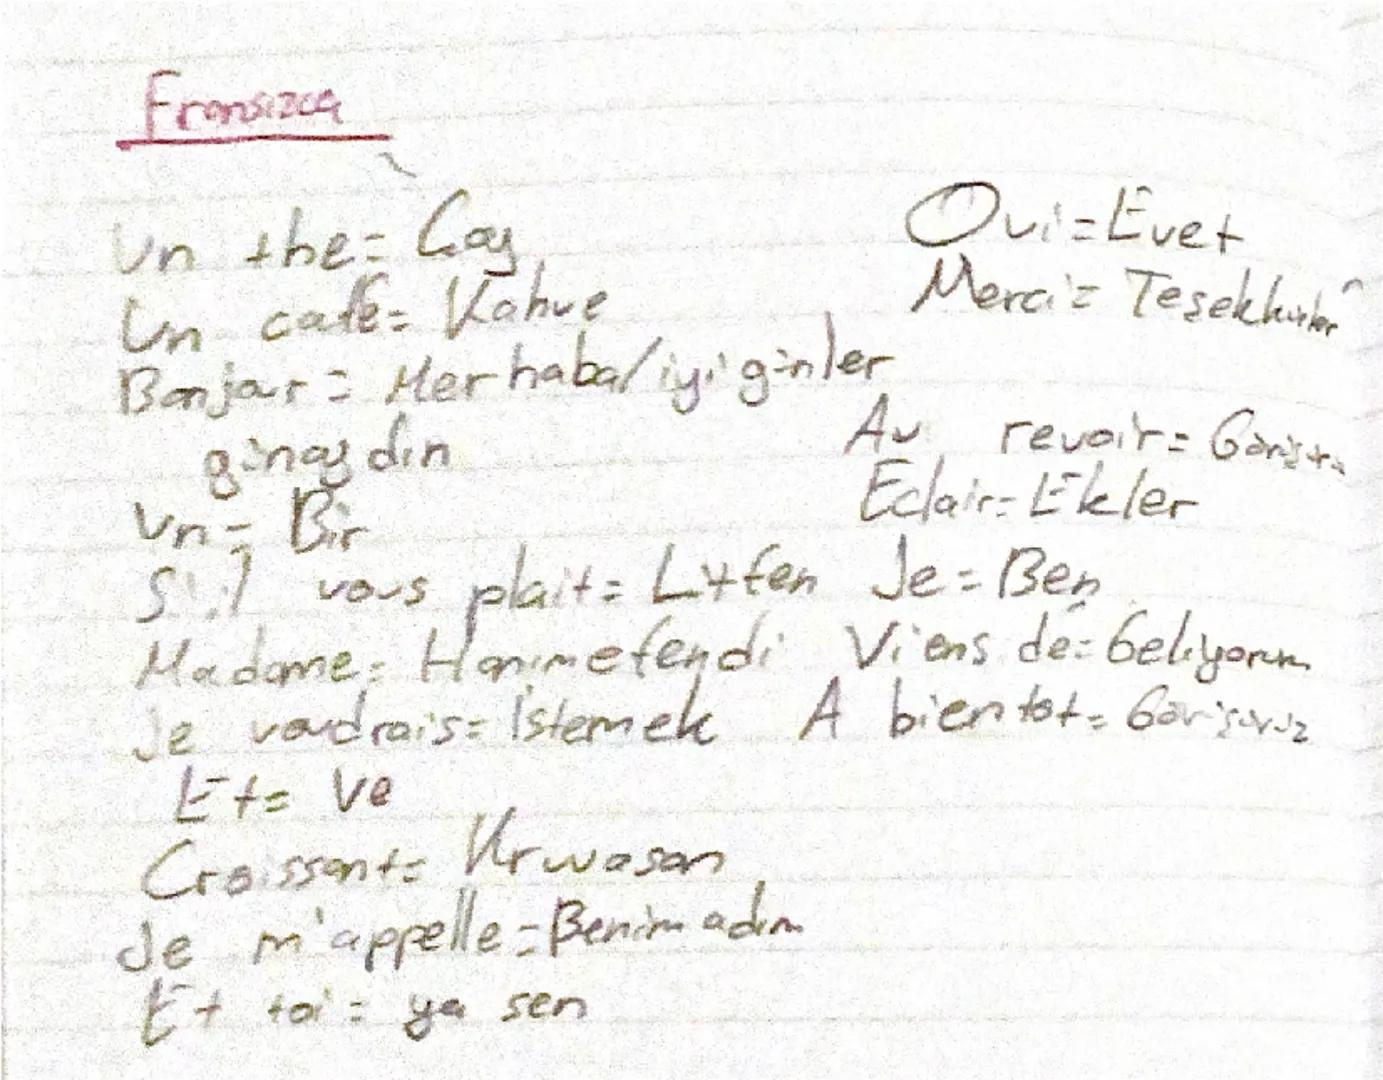 Fransızca
Un the = Çay
Un cafe = Kahve
Bonjour = Merhaba/iyi günler
günaydın
Un = Bir
S'il vous plait = Lütfen
Madame = Hanımefendi
Je voudrais = İstemek
Et = Ve
Croissant = Kruwasan
Je m'appelle = Benim adım
Et toi = ya sen
Oui = Evet
Merci = Teşekkürler
Au revoir =
Eclair = Ekler
Je = Ben
Viens de = Geliyorum
A bientot = Görüşürüz